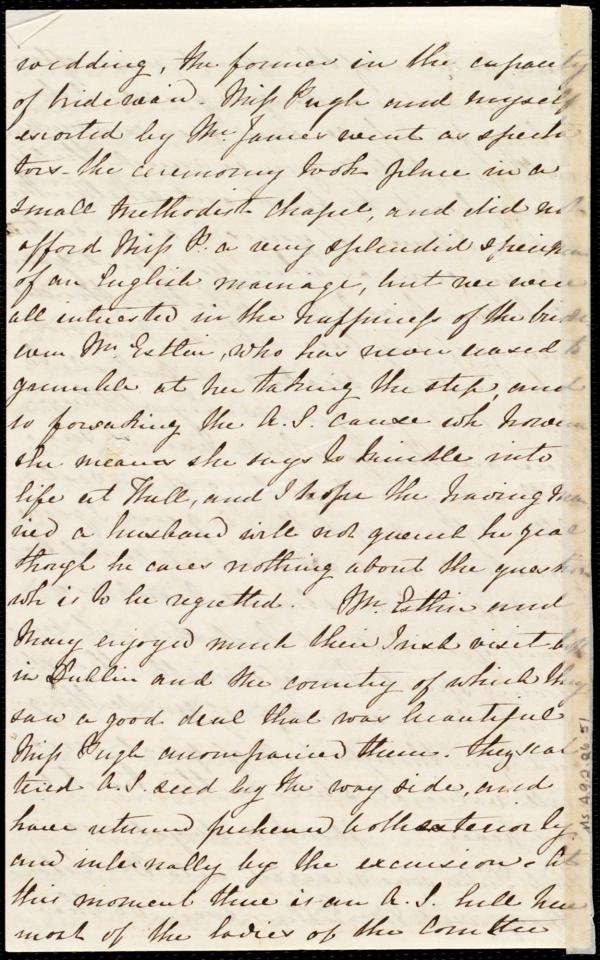 wedding, the former in the capacity
of bridesmaid. Miss Pugh and myself
escorted by Mr. James went as specta
tors. the ceremony took place in a
small Methodist Chapel, and did not
afford Miss P. a very splendid specimen
of an English marriage, but we were
all interested in the happiness of the bride
even Mr. Estlin, who has never ceased to
grumble at her taking the step, and
so forsaking the A.S. cause wh however
she means she says to kindle into
life at Hull, and I hope the having mar
ried a husband will not quench her zeal
though he cares nothing about the question
wh is to be regretted. Mr. Estlin and
Mary enjoyed much their Irish visit both
in Dublin and the country of which they
saw a good deal that was beautiful
Miss Pugh accompanied them. They scat
tered A.S. seed by the way side, and
have returned freshened both exteriorly
and internally by the excursion. At
this moment there is an A.S. lull here
most of the ladies of the Comttee
Ms A.9.2.26.51